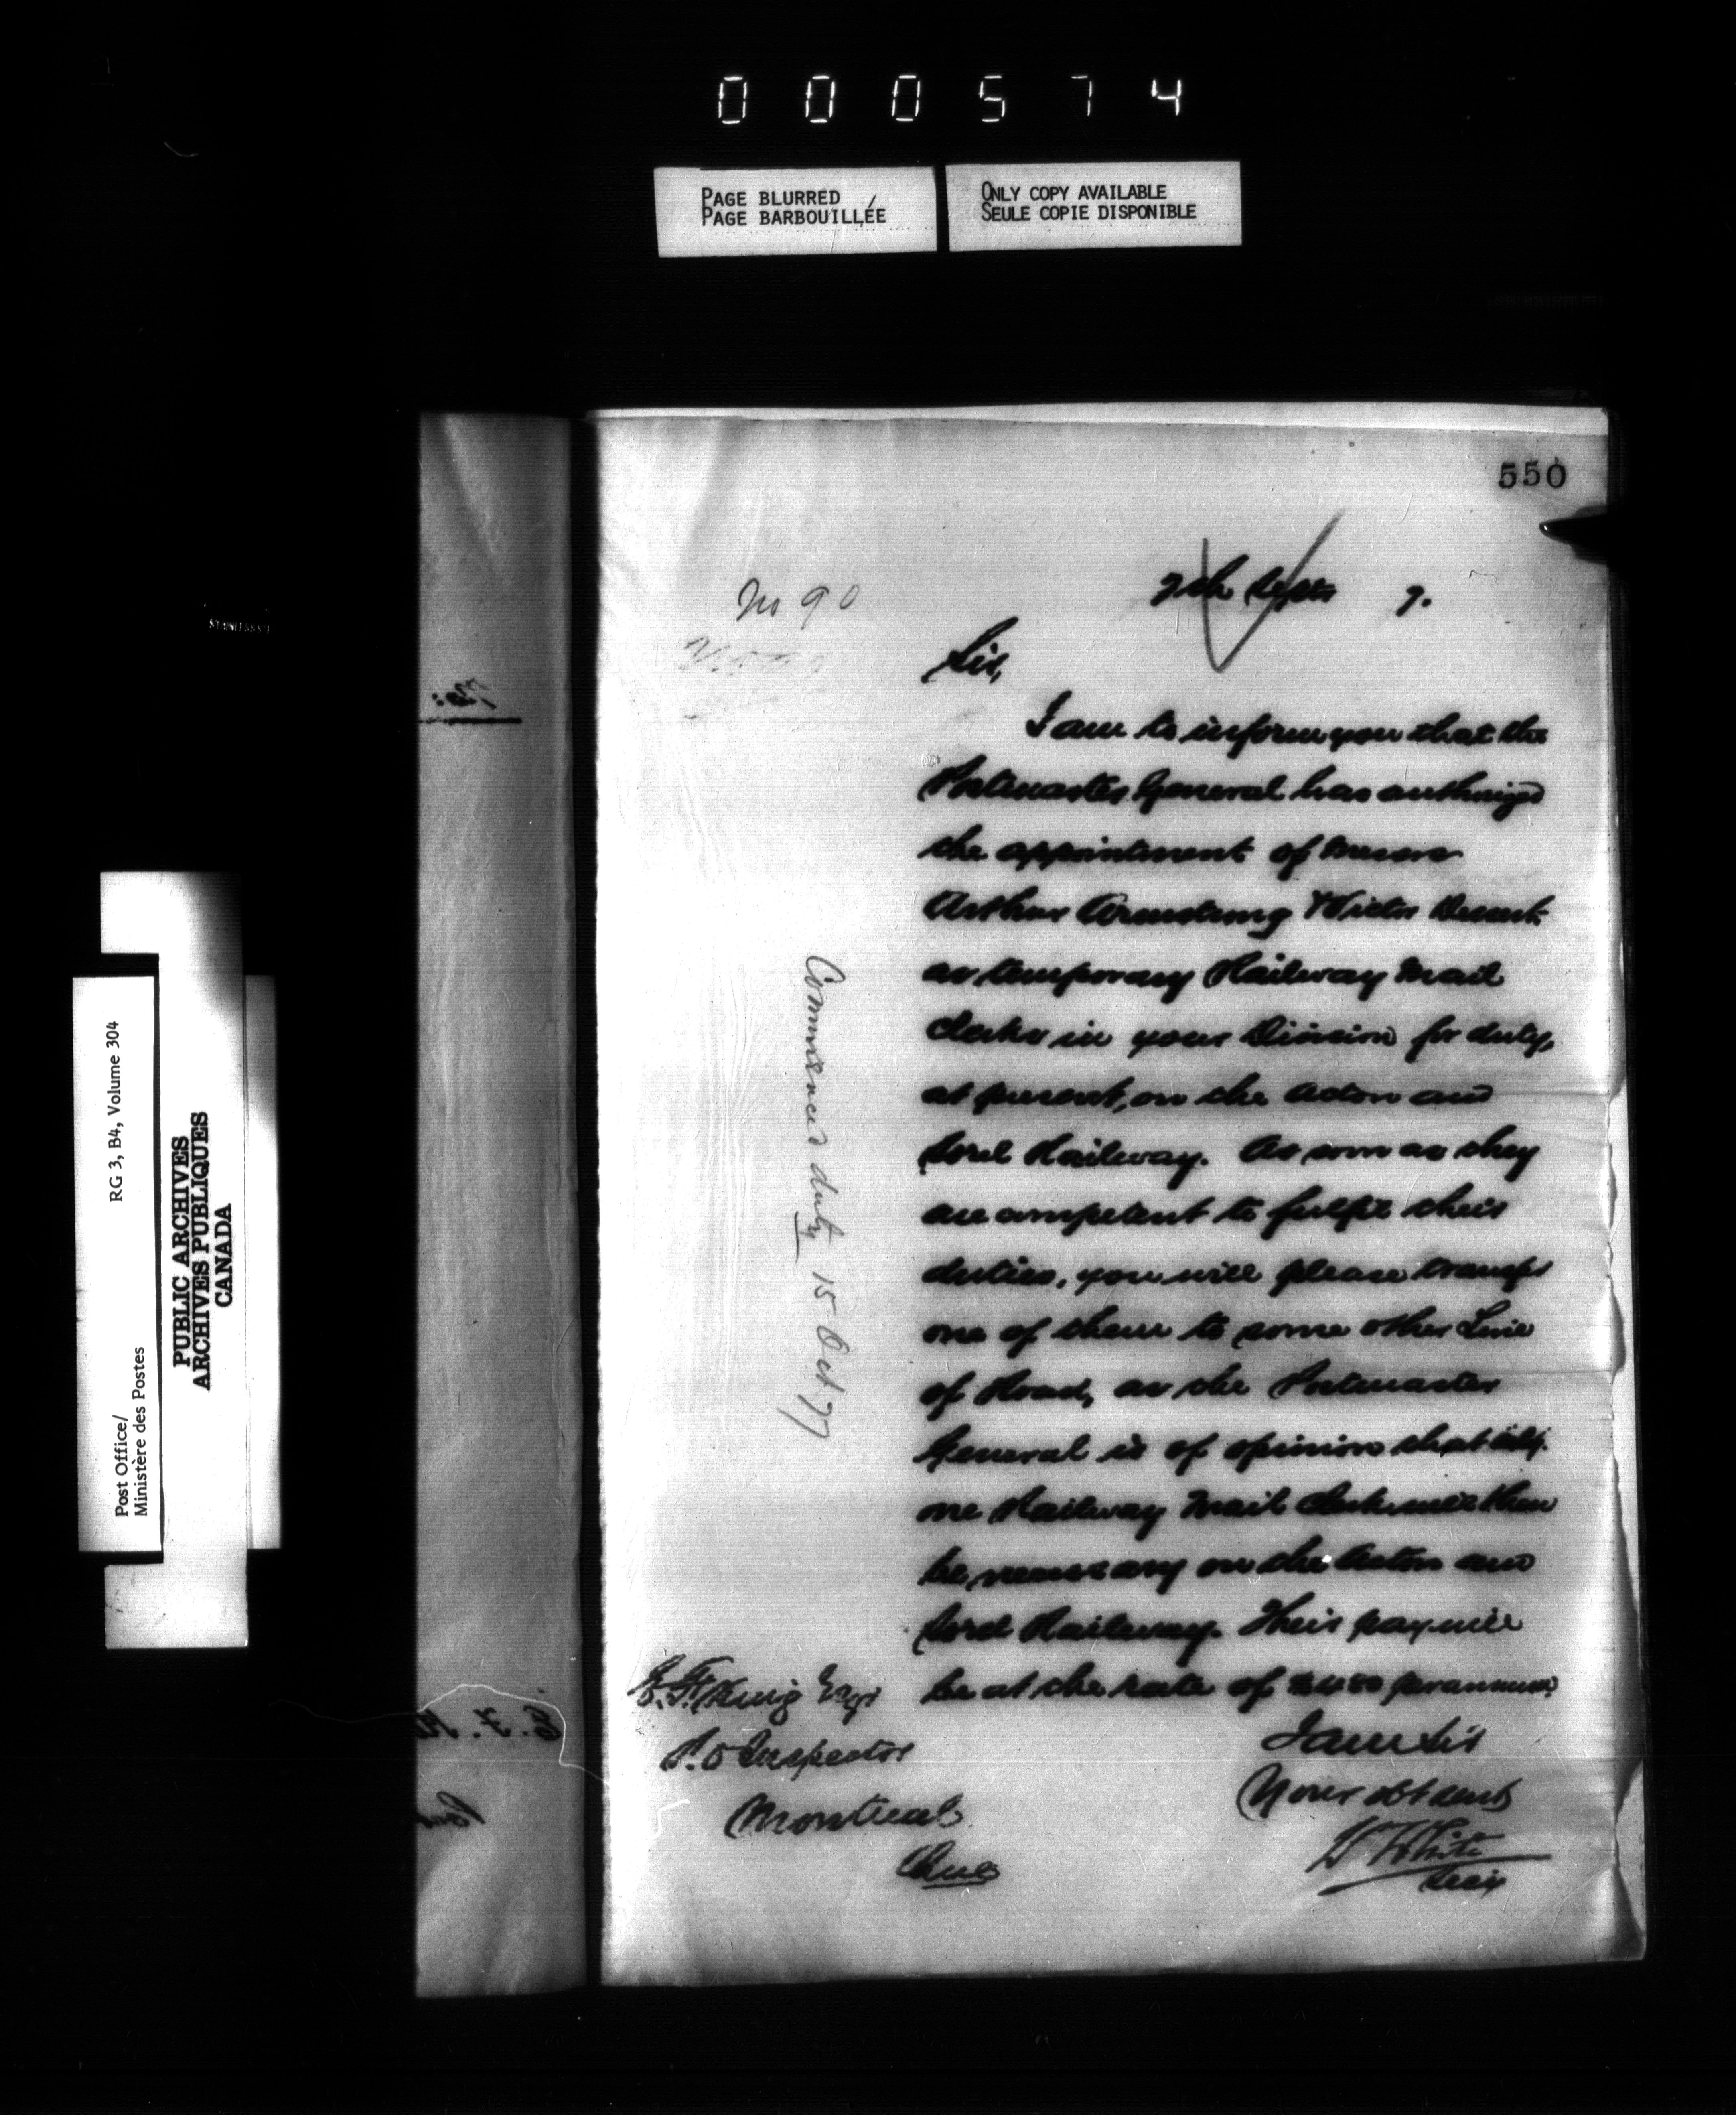 000574
PAGE BLURRED
PAGE BARBOUILLÉE
ONLY COPY AVAILABLE
SEULE COPIE DISPONIBLE
550
No 90
7th Septr 7.
Sir,
I am to inform you that the
Postmaster General has authorized
the appointment of Messrs
Arthur Armstrong & Victor
as temporary Railway Mail
Clerks in your Division for duty,
at present, on the Acton and
Sorel Railway. As soon as they
are competent to fulfil their
duties, you will please transfer
one of them to some other Line
of Road, as the Postmaster
General is of opinion that only
one Railway Mail Clerk will then
be necessary on the Acton and
Sorel Railway. Their pay will
be at the rate of $480 per annum.
I am Sir
Your obt servt
W White
Secy
E. F. King Esqr
P.O Inspector
Montreal
Que
Commenced duty 15 Oct 77
Post Office/
Ministère des Postes
RG 3, B4, Volume 304
PUBLIC ARCHIVES
ARCHIVES PUBLIQUES
CANADA